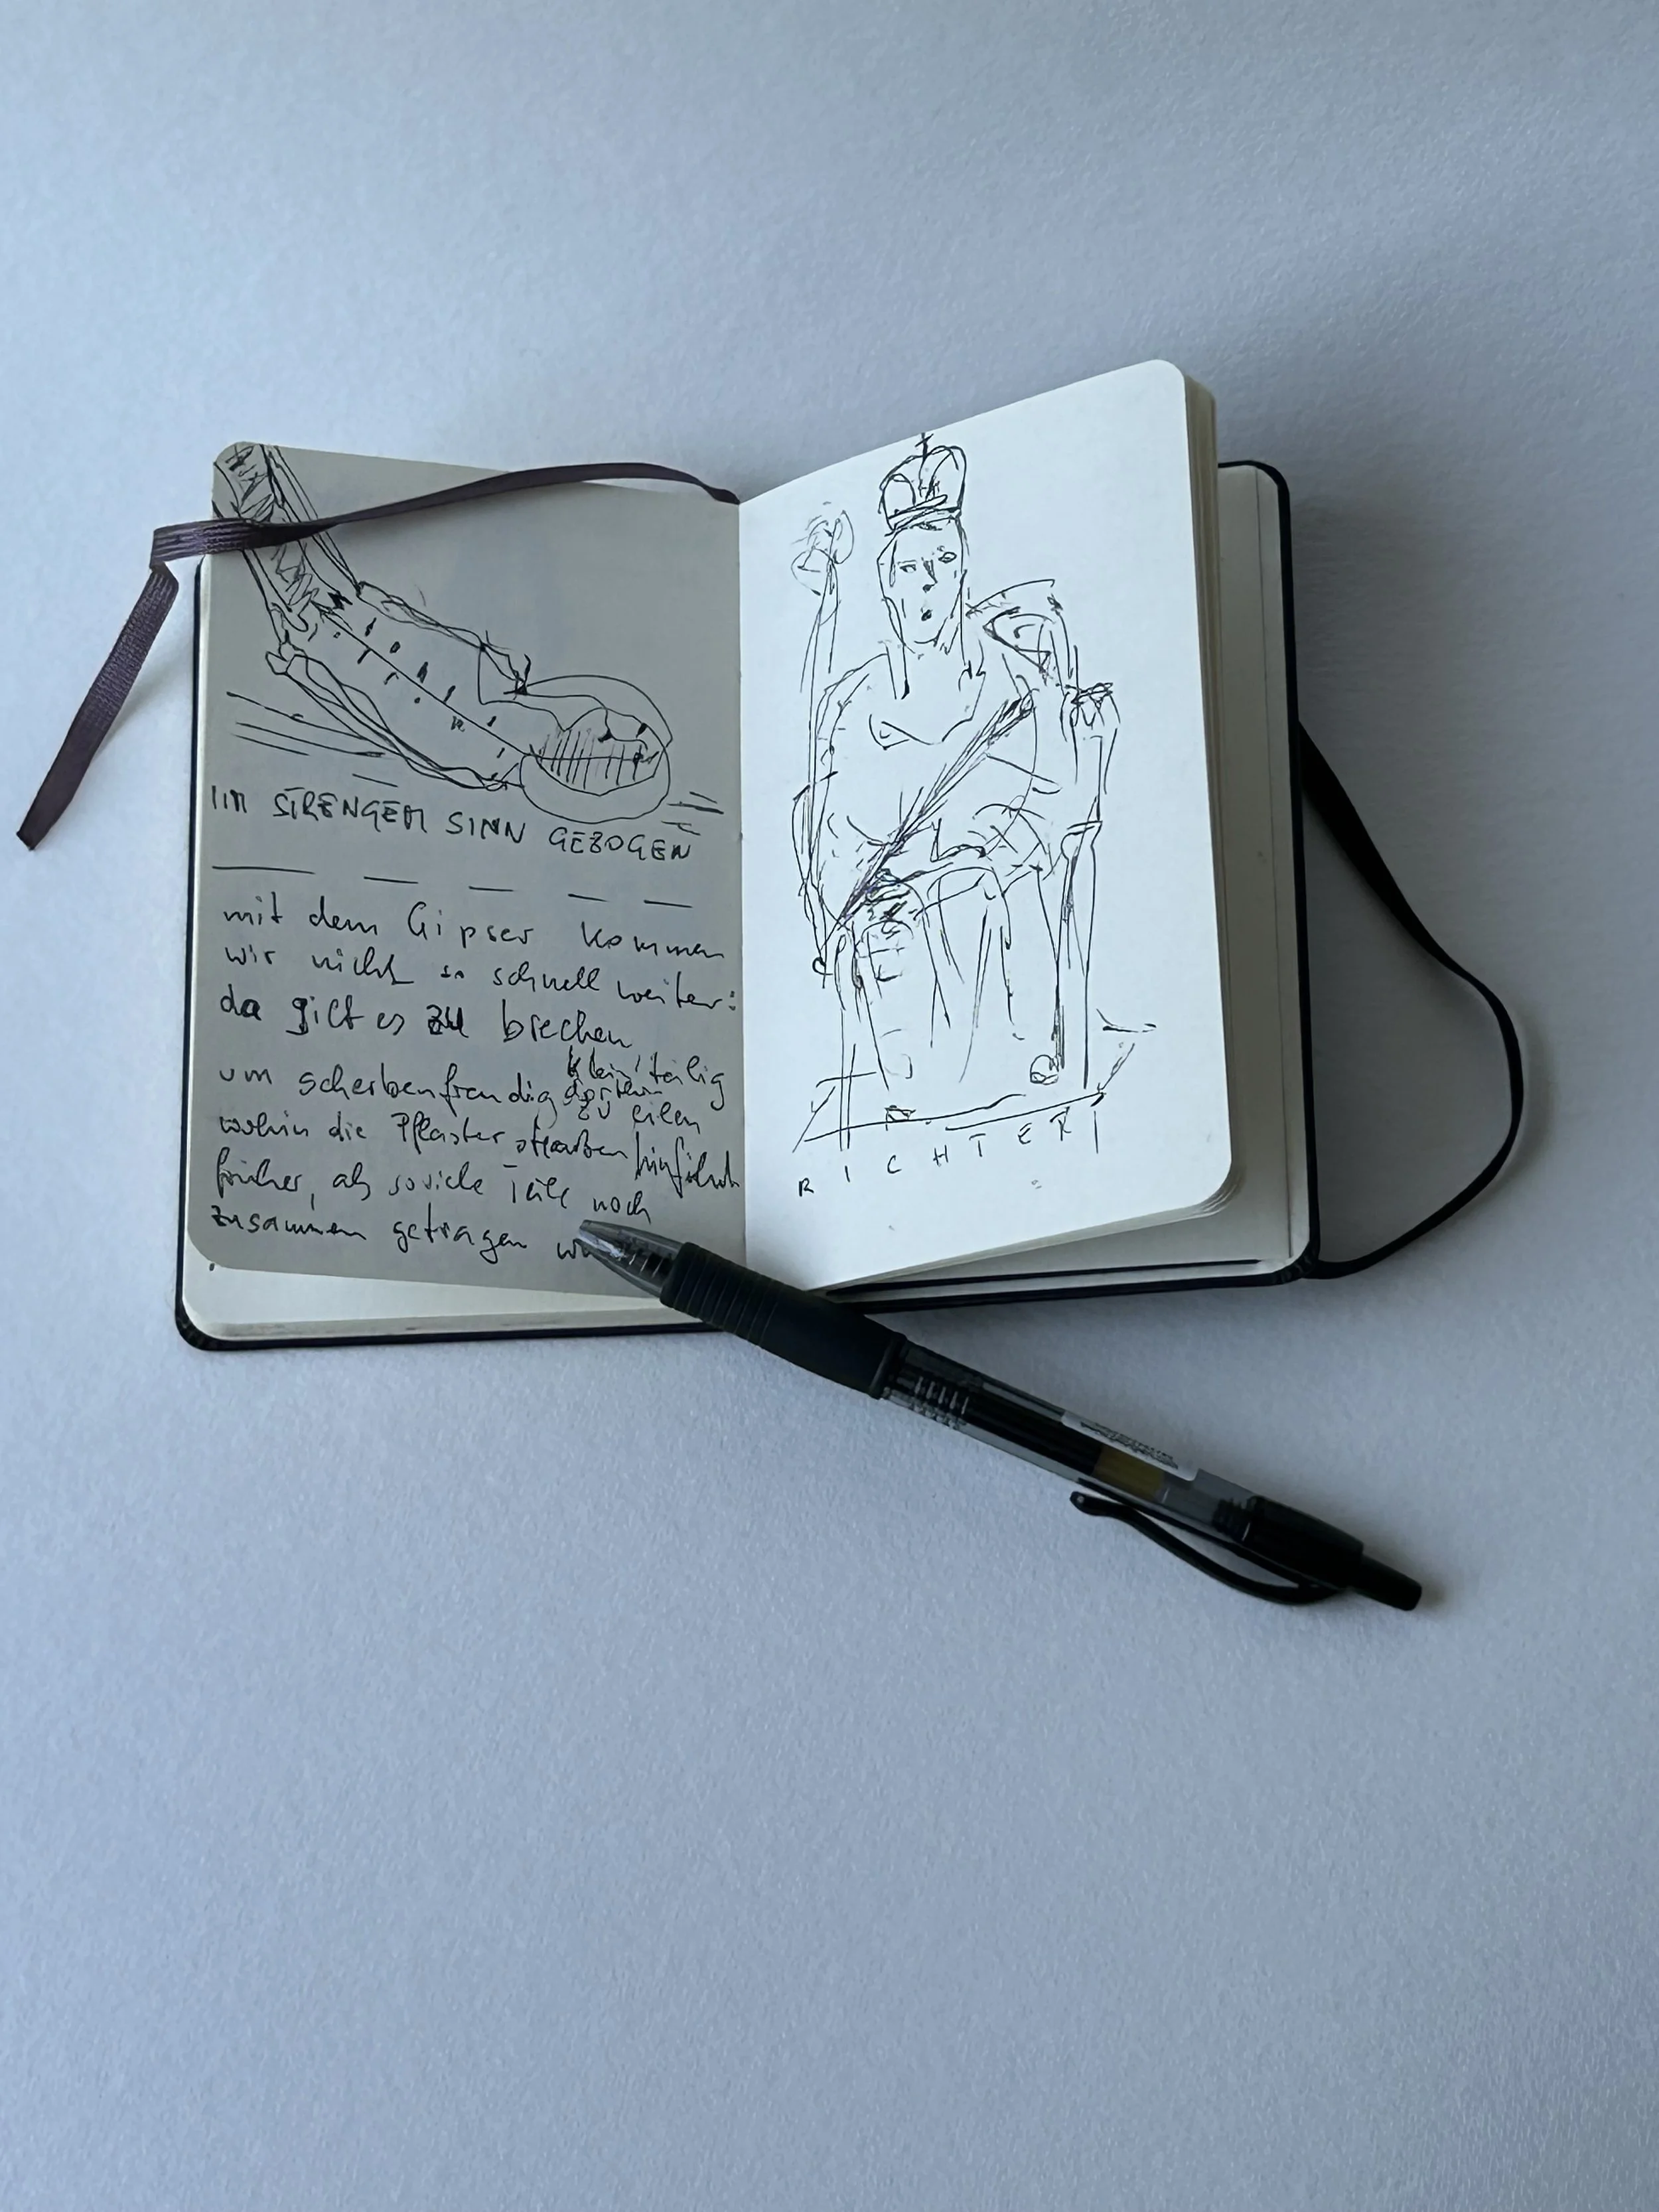 IM STRENGEM SINN GEBOGEN
mit dem Gipser kommen
wir nicht so schnell weiter:
da gilt es zu brechen
um scherbenfreudig kleinteilig
dorthin zu eilen
wohin die Pflaster
früher, als soviele Teile noch
zusammen getragen
RICHTER